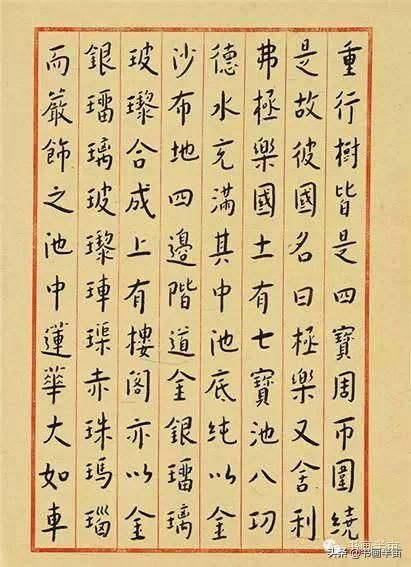 重行樹皆是四寶周帀圍繞
是故彼國名曰極樂又舍利
弗極樂國土有七寶池八功
德水充滿其中池底純以金
沙布地四邊階道金銀瑠璃
玻瓈合成上有樓閣亦以金
銀瑠璃玻瓈𤥭璖赤珠瑪瑙
而嚴飾之池中蓮華大如車
书画半亩
头条 @书画半亩